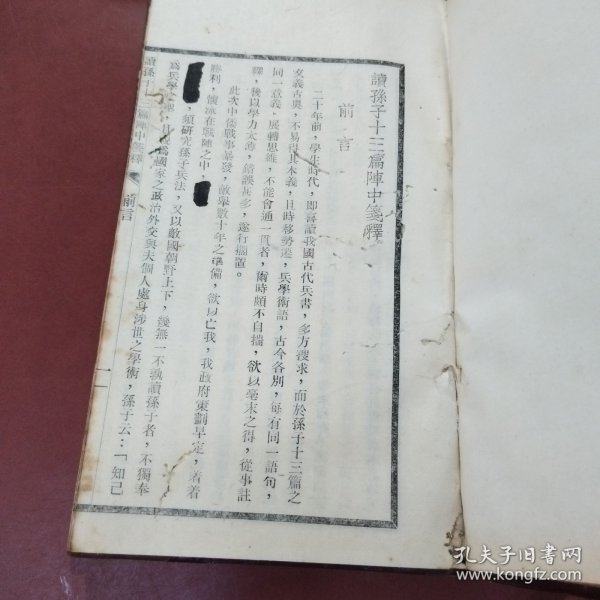 讀孫子十三篇陣中箋釋
前言
二十年前，學生時代，即喜讀我國古代兵書，多方搜求，而於孫子十三篇之
文義古奧，不易得其本義，且時移勢遷，兵學術語，古今各別，每有同一語句，
同一意義，展轉思維，不能會通一貫者，爾時頗不自揣，欲以毫末之得，從事註
釋，後以學力太薄，錯誤甚多，遂行擱置。
此次中倭戰事暴發，敵舉數十年之準備，欲以亡我，我政府策劃早定，着着
勝利，懷冰在戰陣之中，
，須研究孫子兵法，又以敵國朝野上下，幾無一不熟讀孫子者，不獨奉
為兵學之聖，且視為國家之政治外交與夫個人處身涉世之學術，孫子云：「知己
讀孫子十三篇陣中箋釋 前言 一
孔夫子旧书网
www.kongfz.com